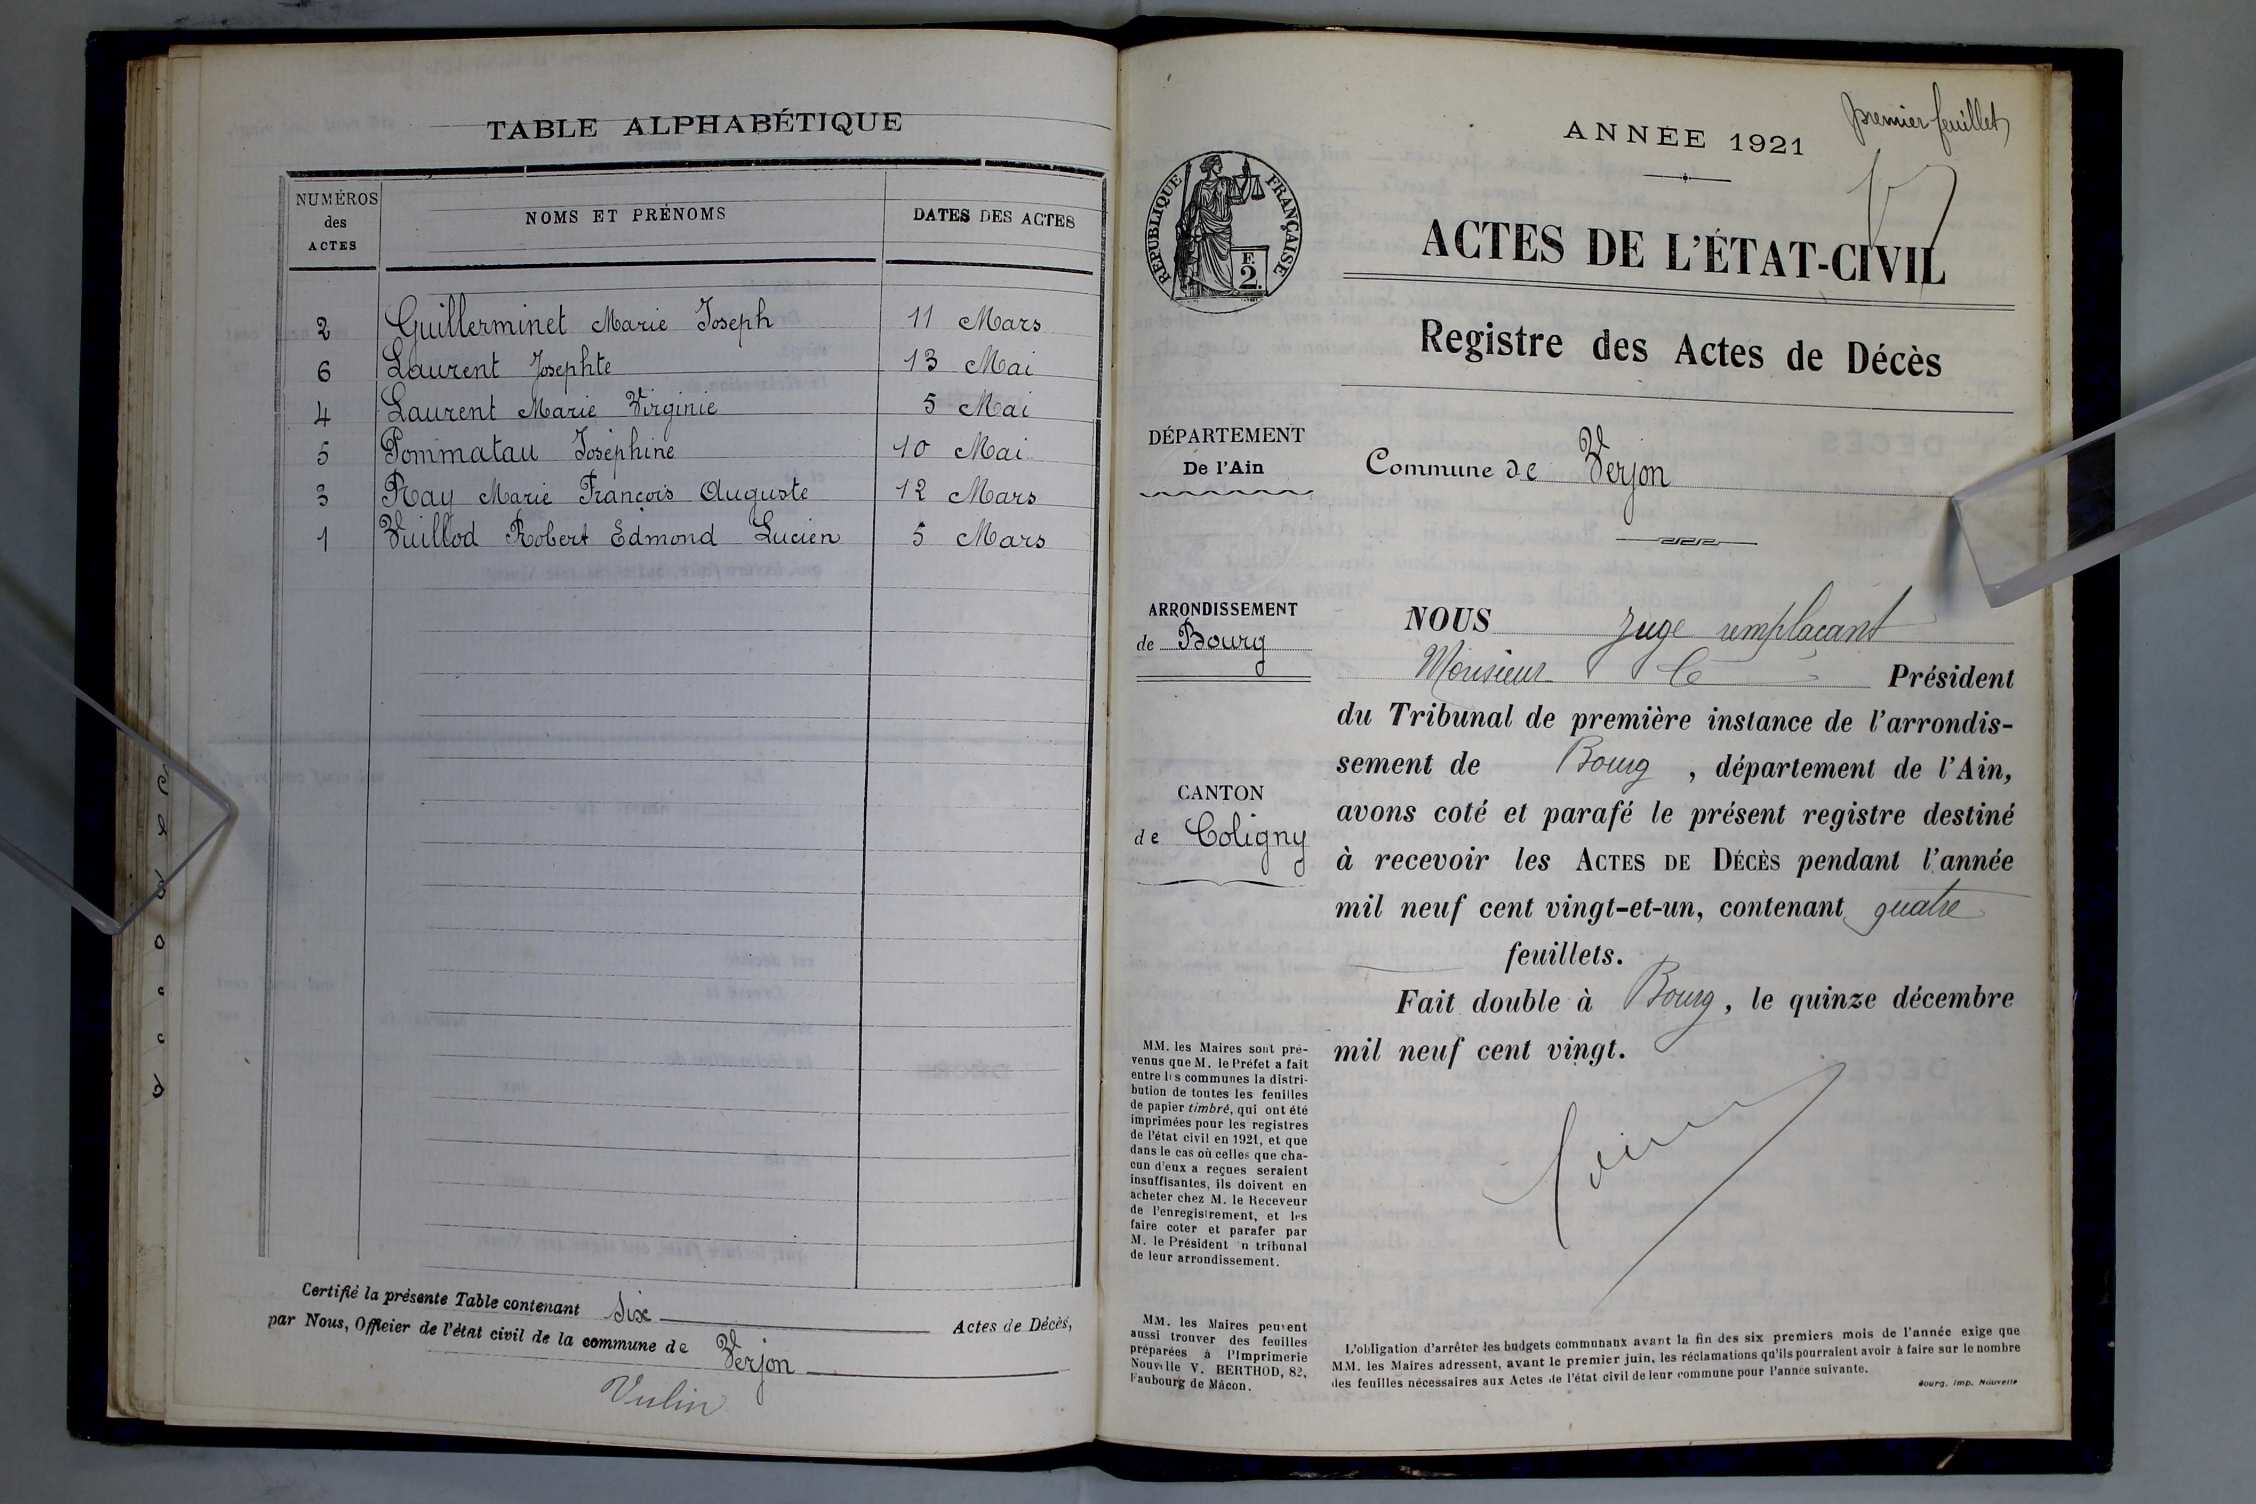 TABLE ALPHABÉTIQUE
NUMÉROS
des
ACTES
NOMS ET PRÉNOMS
DATES DES ACTES
2 Guillerminet Marie Joseph 11 Mars
6 Laurent Josephte 13 Mai
4 Laurent Marie Virginie 5 Mai
5 Pommatau Joséphine 10 Mai
3 Ray Marie François Auguste 12 Mars
1 Vuillod Robert Edmond Lucien 5 Mars
Certifié la présente Table contenant six Actes de Décès,
par Nous, Officier de l'état civil de la commune de Verjon
Vulin
premier feuillet
ANNÉE 1921
RÉPUBLIQUE FRANÇAISE
F.
2.
ACTES DE L'ÉTAT-CIVIL
Registre des Actes de Décès
DÉPARTEMENT
De l'Ain
Commune de Verjon
ARRONDISSEMENT
de Bourg
CANTON
de Coligny
NOUS Juge remplaçant
Monsieur le Président
du Tribunal de première instance de l'arrondis-
sement de Bourg, département de l'Ain,
avons coté et parafé le présent registre destiné
à recevoir les ACTES DE DÉCÈS pendant l'année
mil neuf cent vingt-et-un, contenant quatre
feuillets.
Fait double à Bourg, le quinze décembre
mil neuf cent vingt.
MM. les Maires sont pré-
venus que M. le Préfet a fait
entre les communes la distri-
bution de toutes les feuilles
de papier timbré, qui ont été
imprimées pour les registres
de l'état civil en 1921, et que
dans le cas où celles que cha-
cun d'eux a reçues seraient
insuffisantes, ils doivent en
acheter chez M. le Receveur
de l'enregistrement, et les
faire coter et parafer par
M. le Président n tribunal
de leur arrondissement.
MM. les Maires peuvent
aussi trouver des feuilles
préparées à l'Imprimerie
Nouvelle V. BERTHOD, 82,
Faubourg de Mâcon.
L'obligation d'arrêter les budgets communaux avant la fin des six premiers mois de l'année exige que
MM. les Maires adressent, avant le premier juin, les réclamations qu'ils pourraient avoir à faire sur le nombre
des feuilles nécessaires aux Actes de l'état civil de leur commune pour l'année suivante.
Bourg, imp. Nouvelle